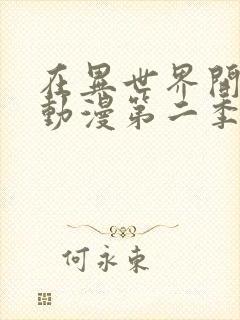 在異世界開
動漫第二季
何永東